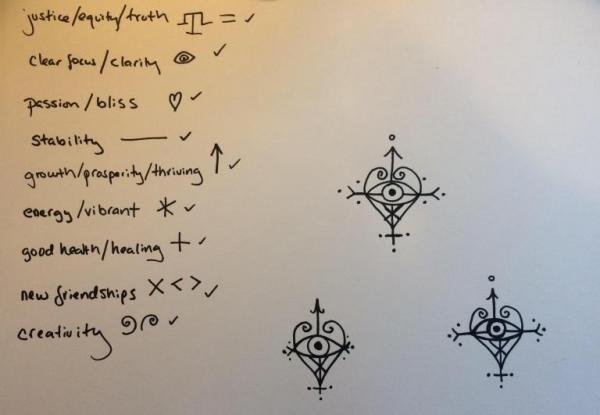 justice/equity/truth = ✓
clear focus/clarity ✓
passion/bliss ♡ ✓
stability — ✓
growth/prosperity/thriving ↑ ✓
energy/vibrant * ✓
good health/healing + ✓
new friendships X < > ✓
creativity ✓